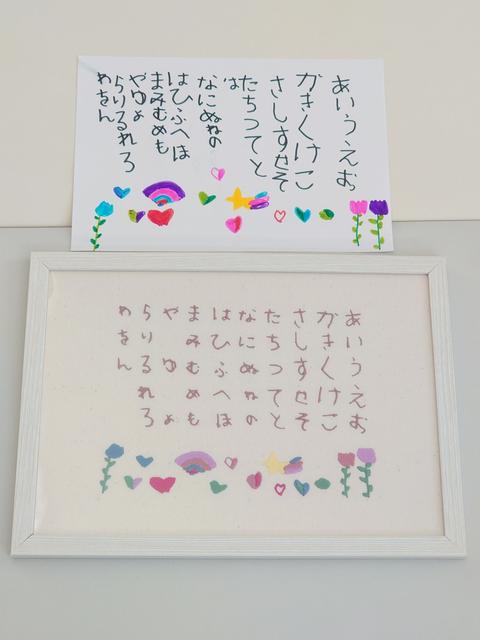 あいうえお
かきくけこ
さしすせそ
たちつてと
は
なにぬねの
はひふへほ
まみむめも
やゆよ
らりるれろ
わをん
あいうえお
かきくけこ
さしすせそ
たちつてと
なにぬねの
はひふへほ
まみむめも
やゆよ
らりるれろ
わをん